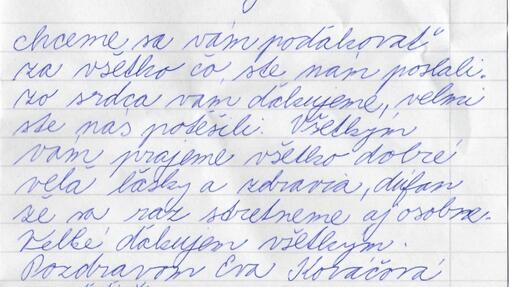 chceme sa vám poďakovať
za všetko čo, ste nám poslali.
zo srdca vam ďakujeme, velmi
ste nás potešili. Všetkým
vam prajeme všetko dobré
vela lásky a zdravia, dúfam
že sa raz stretneme aj osobne.
Velké ďakujem všetkým.
Pozdravom Eva Kováčová